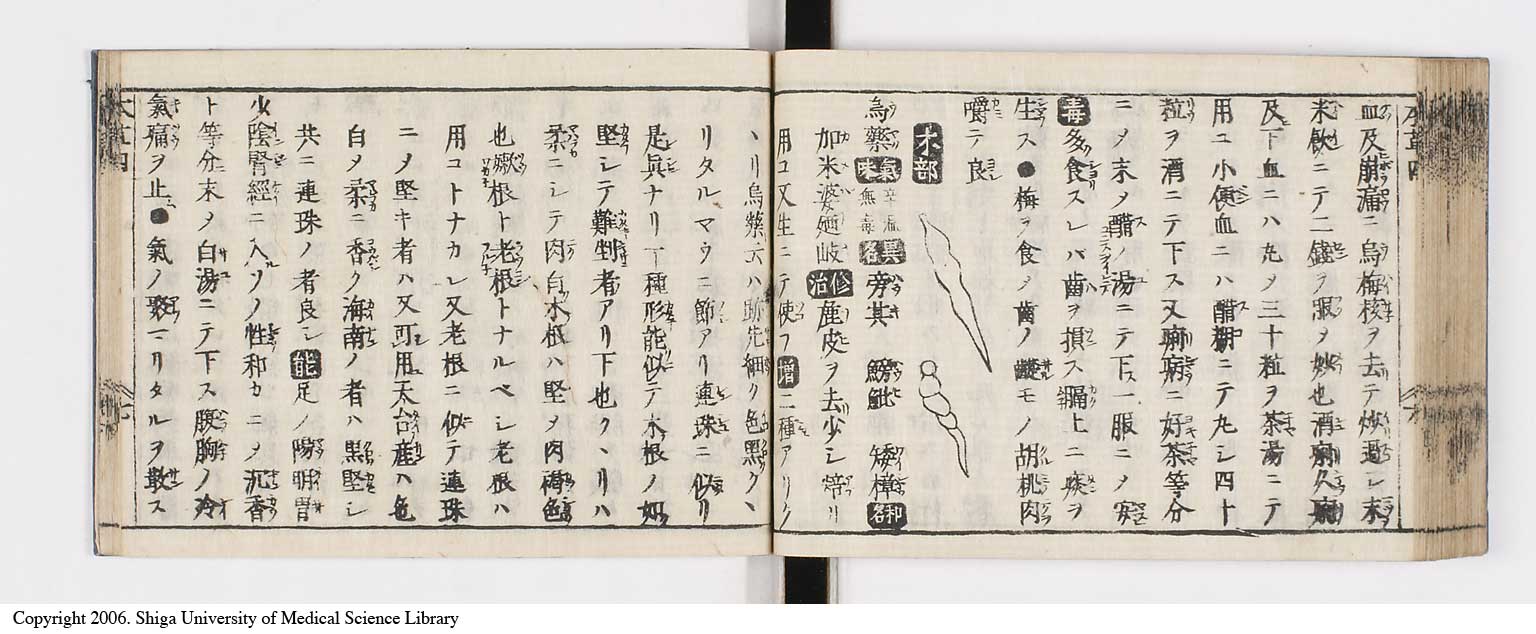 血及崩漏ニ烏梅核ヲ去テ炒過シ末
米飲ニテ二錢ヲ服ヲ妙也酒痢久痢
及下血ニハ丸メ三十粒ヲ茶湯ニテ
用ユ小便血ニハ醋糊ニテ丸シ四十
粒ヲ酒ニテ下ス又痢病ニ好茶等分
ニメ末ヲ醋ノ湯ニテ下ス一服ニメ安
毒多食スレバ歯ヲ損ス膈上ニ痰ヲ
生ス●梅ヲ食メ歯ノ モノ胡桃肉
嚼テ良
木部
烏藥 氣味 辛温無毒 異名 旁其 鰟魮 矮樟 和名
加米婆廼岐 修治 産皮ヲ去少シ焙リ
用ユ又生ニテ使フ 増 二種アリク
ヽリ烏藥云ハ跡先細ク色黒クヽ
リタルマウニ節アリ連珠ニ似リ
是眞ナリ下種形能似テ木根ノ如
堅シテ難剉者アリ下也クヽリハ
柔ニシテ肉白木根ハ堅メ肉褐色
也嫩根ト老根トナルベシ老根ハ
用コトナカレ又老根ニ似テ連珠
ニメ堅キ者ハ又可用天台産ハ色
白メ柔ニ香ク海南ノ者ハ黒堅シ
共ニ連珠ノ者良シ 能 足ノ陽明胃
少陰腎經ニ入リノ性和カニメ沉香
ト等分末メ白湯ニテ下ス腹胸ノ冷
氣痛ヲ止●氣ノ聚マリタルヲ散ス
Copyright 2006. Shiga University of Medical Science Library